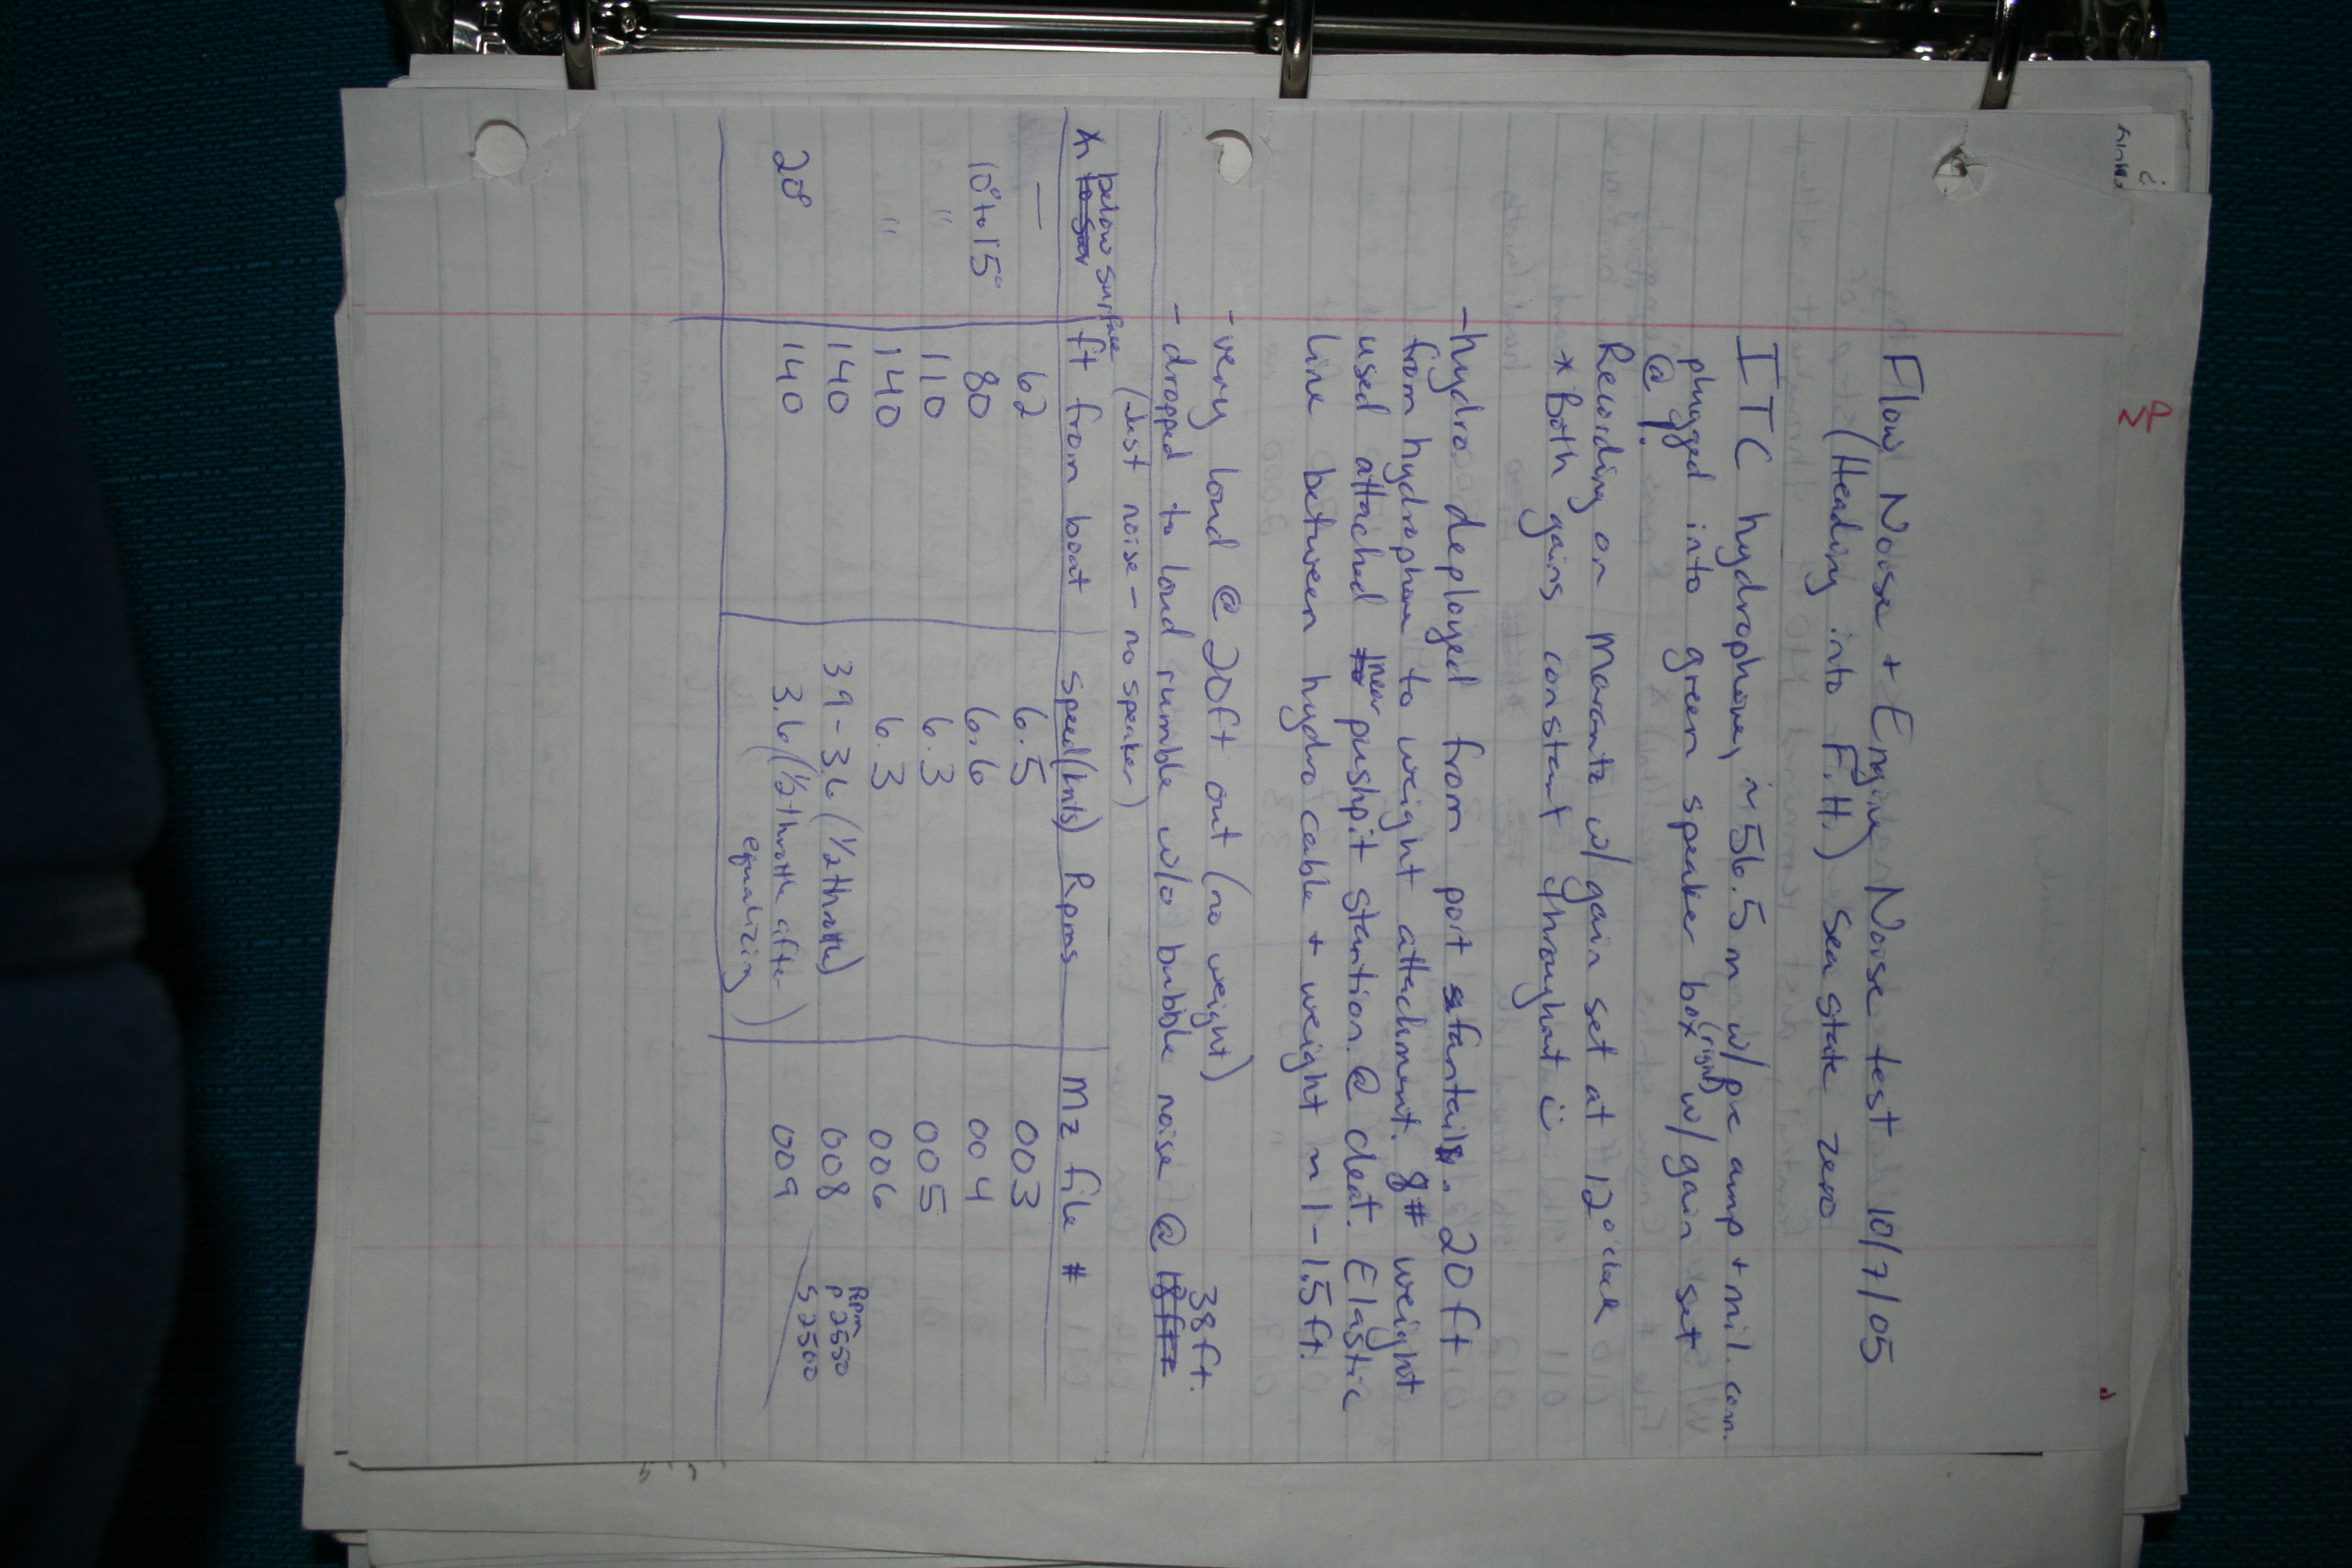 Flow Noise + Engine Noise test 10/7/05
(Heading into F.H.) Sea state zero
ITC hydrophone, ~56.5 m w/pre amp + mil. conn.
plugged into green speaker box (right) w/gain set
@ 9.
Recording on Marantz w/gain set at 12 o'clock
* Both gains constant throughout
-hydro. deployed from port stantail. 20 ft
from hydrophone to weight attachment. 8# weight
used attached near pushpit stantion @ cleat. Elastic
line between hydro cable + weight ~ 1 - 1.5 ft.
- very loud @ 20ft out (no weight)
- dropped to loud rumble w/o bubble noise @ 18ft 38ft.
(Just noise - no speaker)
below surface
ft from boat speed (knts) Rpms Mz file #
— 62 6.5 003
10° to 15° 80 6.6 004
" 110 6.3 005
" 140 6.3 006
140 3.9 - 3.6 (1/2 throttle) 008 Rpm P 2550
20° 140 3.6 (1/2 throttle after equalizing) 009 S 2500